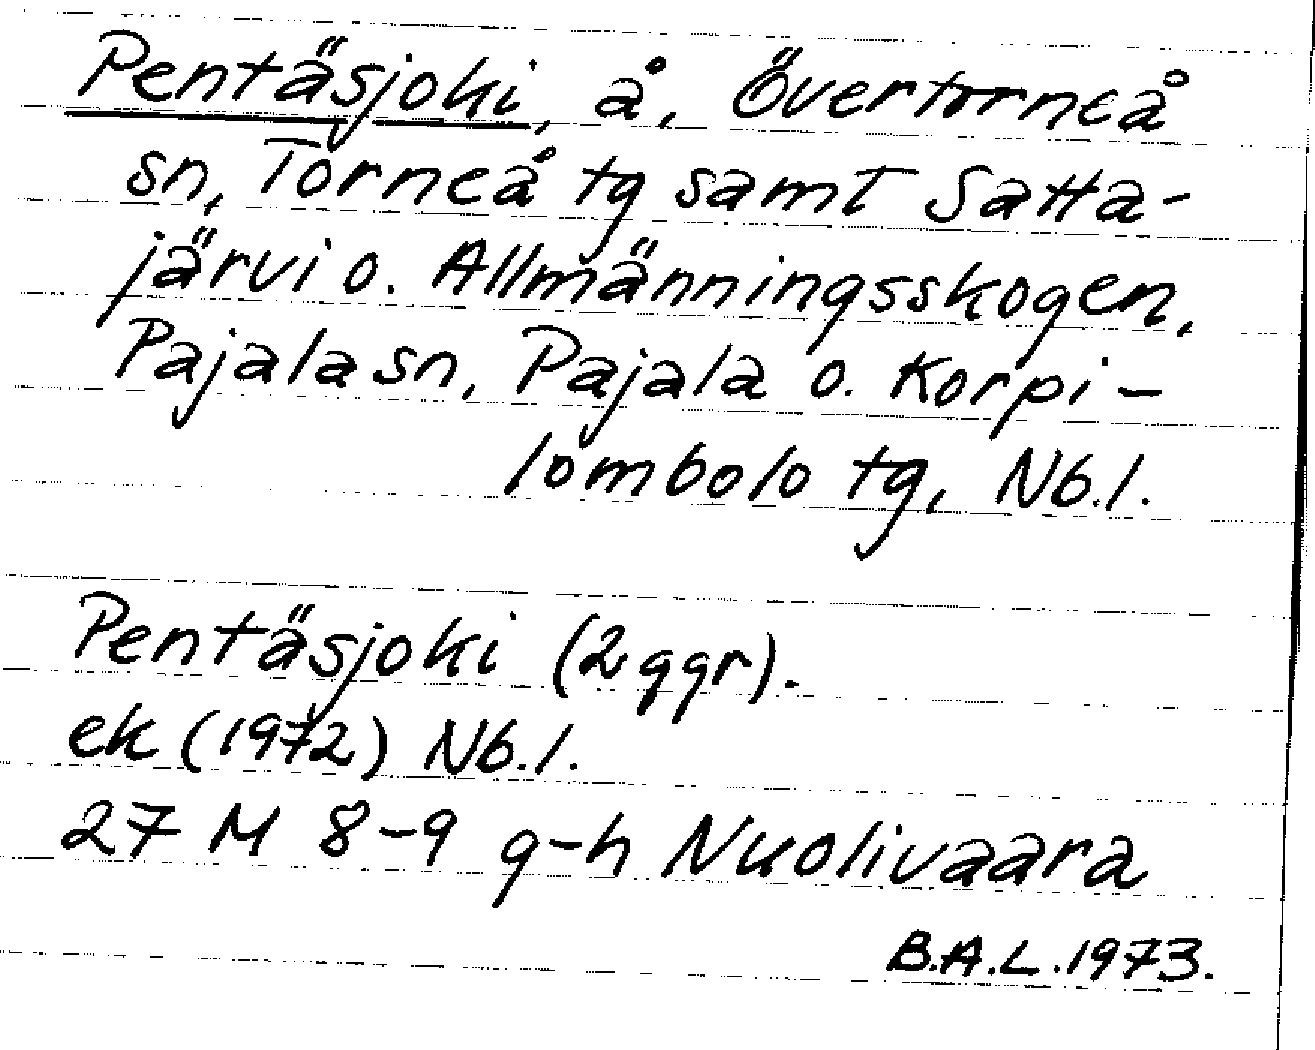 Pentäsjoki, å, Övertorneå
sn, Torneå tg samt Satta-
järvi o. Allmänningsskogen,
Pajala sn, Pajala o. Korpi-
lombolo tg, Nb.l.
Pentäsjoki (2 ggr).
ek (1972) Nb.l.
27 M 8-9 g-h Nuolivaara
B.A.L. 1973.